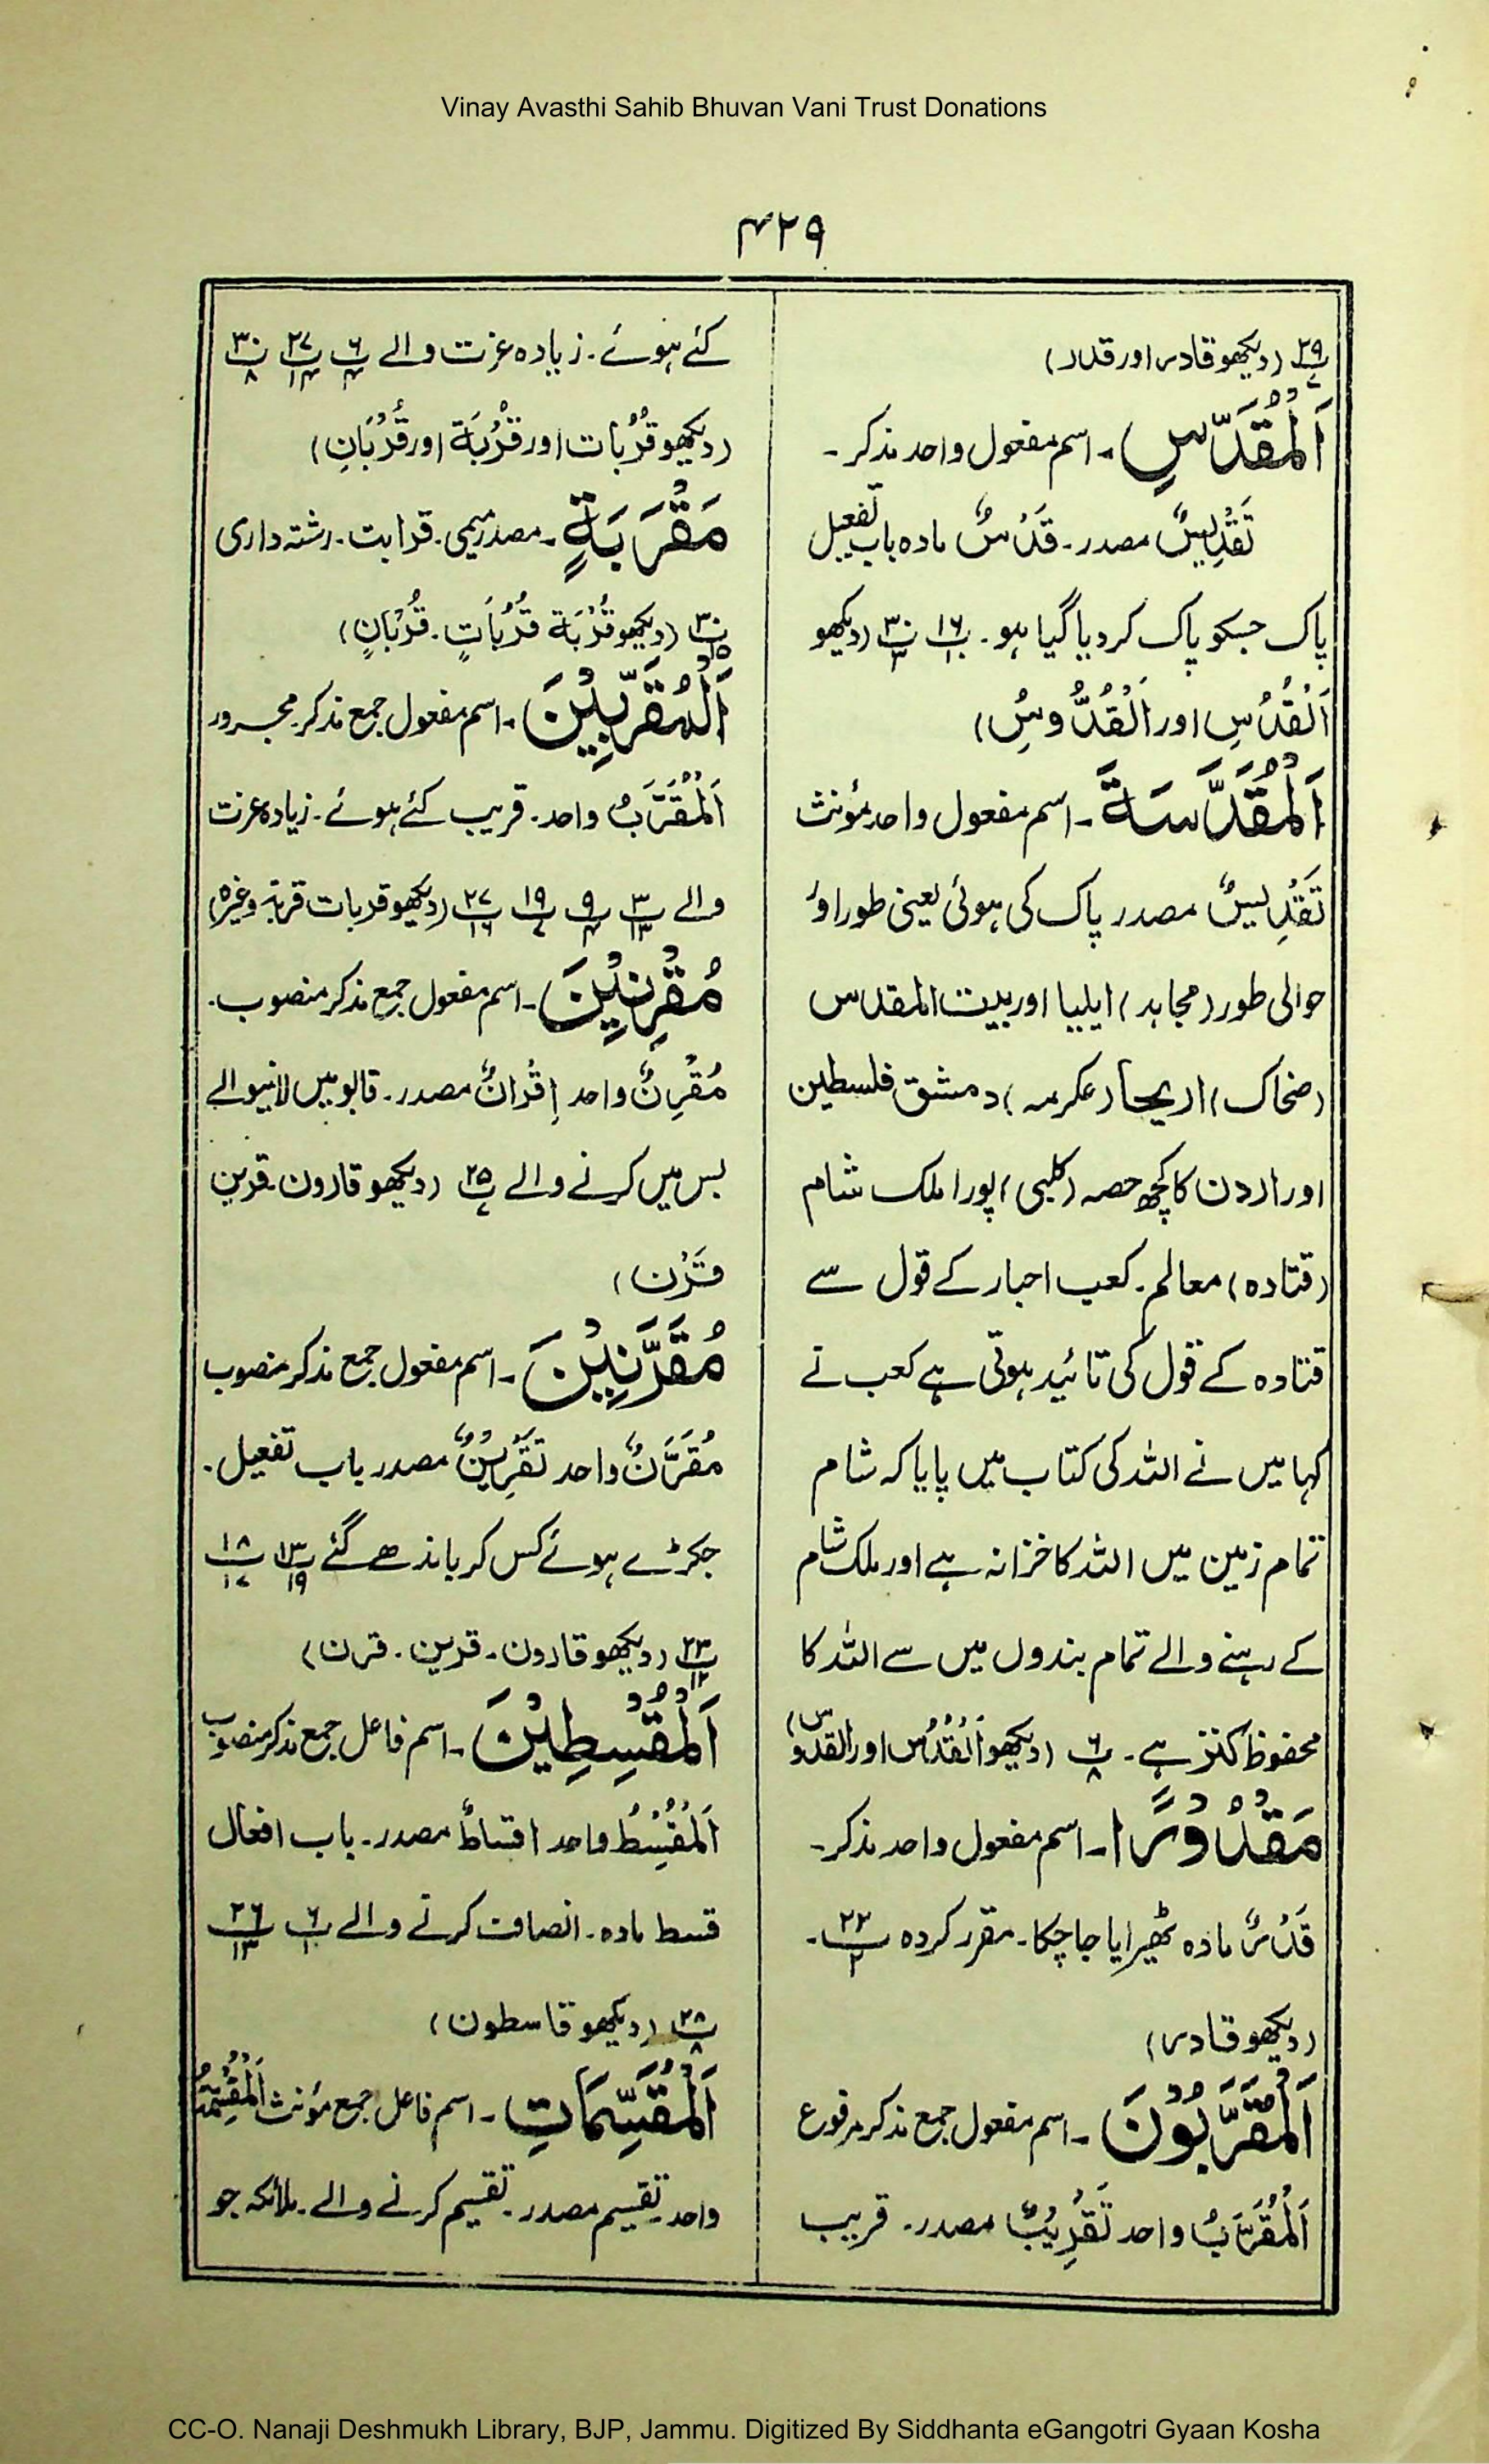 Vinay Avasthi Sahib Bhuvan Vani Trust Donations
۴۲۹
پ۲۹/۷ (دیکھو قادر اور قدر)
اَلْمُقَدَّسِ)۔ اسم مفعول واحد مذکر۔
تَقْدِیْسٌ مصدر۔ قَدْسٌ مادہ باب تفعیل
پاک جسکو پاک کر دیا گیا ہو۔ پ۱۶/۱۰ پ۳۰/۳ (دیکھو
اَلْقُدُسِ اور اَلْقُدُّوسُ)
اَلْمُقَدَّسَةَ۔ اسم مفعول واحد مؤنث
تَقْدِیْسٌ مصدر پاک کی ہوئی یعنی طور اور
حوالی طور (مجاہد) ایلیا اور بیت المقدس
(ضحاک) اریحا (عکرمہ) دمشق فلسطین
اور اردن کا کچھ حصہ (کلبی) پورا ملک شام
(قتادہ) معالم۔ کعب احبار کے قول سے
قتادہ کے قول کی تائید ہوتی ہے کعب نے
کہا میں نے اللہ کی کتاب میں پایا کہ شام
تمام زمین میں اللہ کا خزانہ ہے اور ملک شام
کے رہنے والے تمام بندوں میں سے اللہ کا
محفوظ کنز ہے۔ پ۶/۸ (دیکھو اَلْقُدُس اور القدوس)
مَقْدُوْرًا۔ اسم مفعول واحد مذکر۔
قَدْرٌ مادہ ٹھیرایا جا چکا۔ مقرر کردہ پ۲۲/۲۔
(دیکھو قادر)
اَلْمُقَرَّبُوْنَ۔ اسم مفعول جمع مذکر مرفوع
اَلْمُقَرَّبُ واحد تَقْرِیْبٌ مصدر۔ قریب
کئے ہوئے۔ زیادہ عزت والے پ۶/۴ پ۲۷/۱۴ پ۳۰/۸
(دیکھو قُرُبَات اور قُرْبَة اور قُرْبَانِ)
مَقْرَبَةٍ۔ مصدر میمی۔ قرابت۔ رشتہ داری
پ۳۰/۱۵ (دیکھو قُرْبَة قُرُبَاتٍ۔ قُرْبَانٍ)
اَلْمُقَرَّبِیْنَ۔ اسم مفعول جمع مذکر مجرور
اَلْمُقَرَّبُ واحد۔ قریب کئے ہوئے۔ زیادہ عزت
والے پ۳/۱۳ پ۹/۴ پ۱۹/۷ پ۲۷/۱۶ (دیکھو قربات قربۃ وغیرہ)
مُقْرِنِیْنَ۔ اسم مفعول جمع مذکر منصوب۔
مُقْرِنٌ واحد اِقْرَانٌ مصدر۔ قابو میں لانیوالے
بس میں کرنے والے پ۲۵/۷ (دیکھو قارون۔ قرین
قَرْن)
مُقَرَّنِیْنَ۔ اسم مفعول جمع مذکر منصوب
مُقَرَّنٌ واحد تَقْرِیْنٌ مصدر باب تفعیل۔
جکڑے ہوئے کس کر باندھے گئے پ۱۳/۱۹ پ۱۸/۱۷
پ۲۳/۱۲ (دیکھو قارون۔ قرین۔ قرن)
اَلْمُقْسِطِیْنَ۔ اسم فاعل جمع مذکر منصوب
اَلْمُقْسِطُ واحد اقساطٌ مصدر۔ باب افعال
قسط مادہ۔ انصاف کرنے والے پ۶/۱۰ پ۲۶/۱۳
پ۲۸/۸ (دیکھو قاسطون)
اَلْمُقَسِّمَاتِ۔ اسم فاعل جمع مؤنث اَلْمُقَسِّمَةُ
واحد۔ تقسیم مصدر۔ تقسیم کرنے والے۔ ملائکہ جو
CC-O. Nanaji Deshmukh Library, BJP, Jammu. Digitized By Siddhanta eGangotri Gyaan Kosha